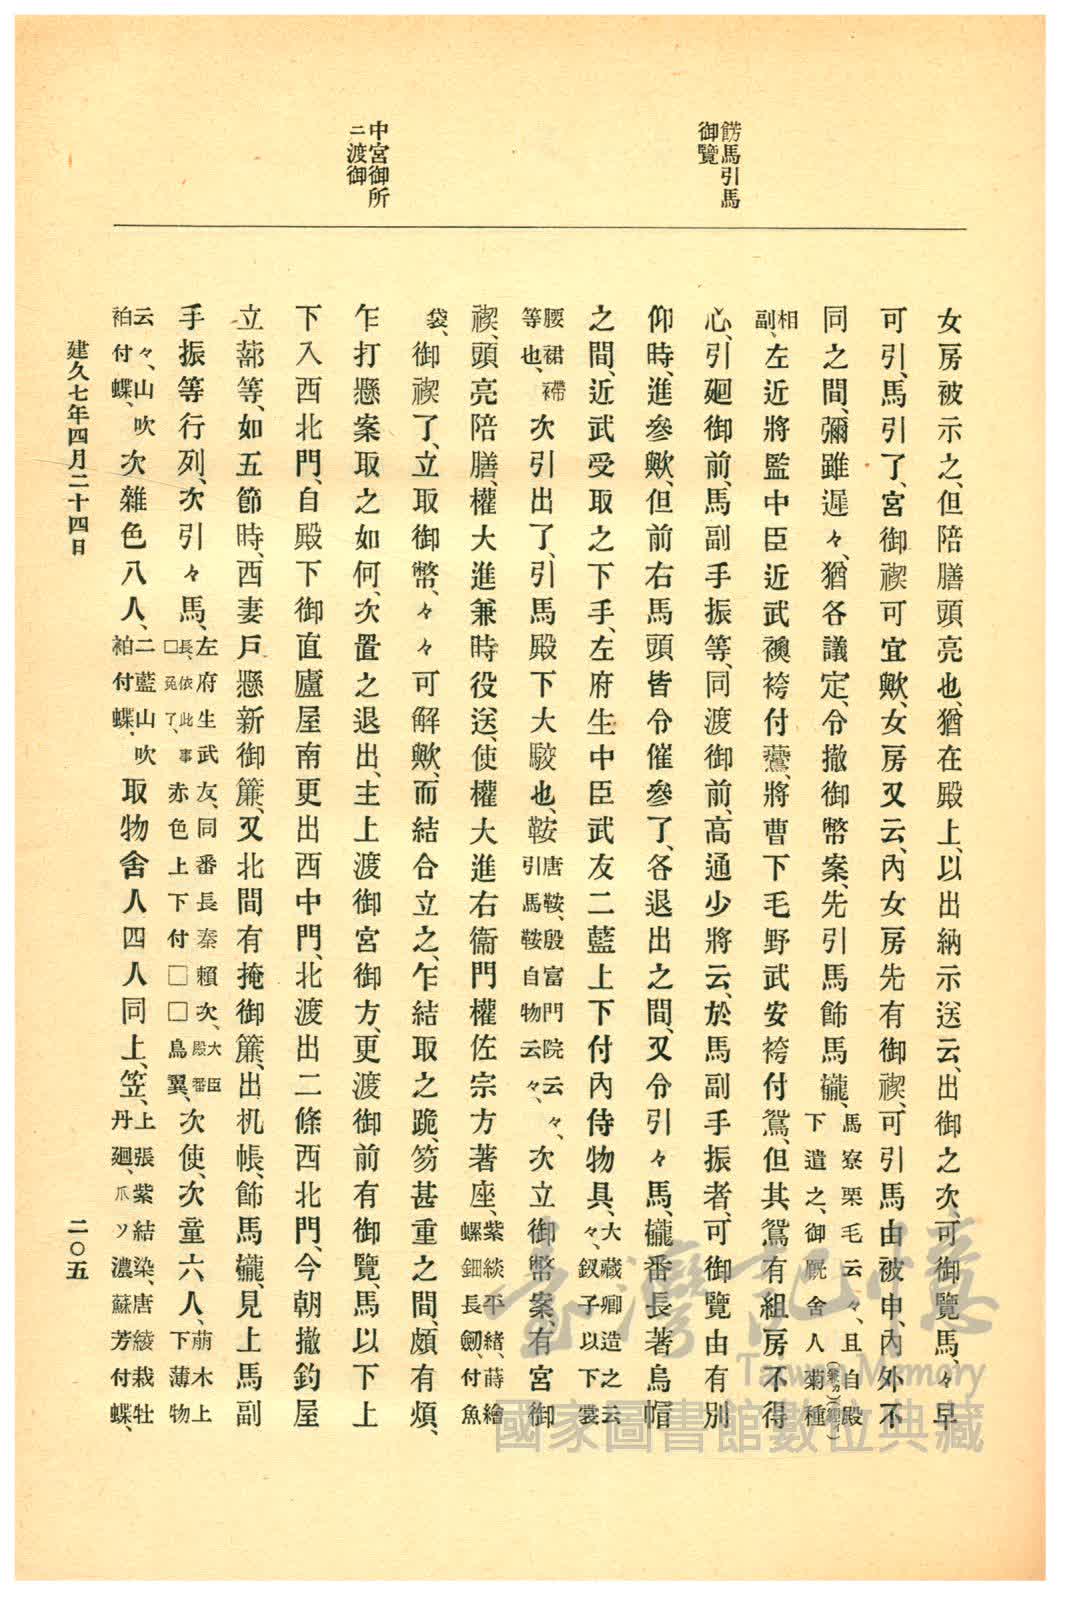 餝馬引馬
御覽
中宮御所
ニ渡御
女房被示之、但陪膳頭亮也、猶在殿上、以出納示送云、出御之次、可御覽馬、々早
可引、馬引了、宮御禊可宜歟、女房又云、內女房先有御禊、可引馬由被申、內外不
同之間、彌雖遲々、猶各議定、令撤御幣案、先引馬飾馬櫳、馬寮栗毛云々、且自殿下遣之、御厩舍人菊種
相副、左近將監中臣近武襖袴付鷰、將曹下毛野武安袴付鴛、但其鴛有組房不得
心、引廻御前、馬副手振等、同渡御前、高通少將云、於馬副手振者、可御覽由有別
仰時、進參歟、但前右馬頭皆令催參了、各退出之間、又令引々馬、櫳番長著烏帽
之間、近武受取之下手、左府生中臣武友二藍上下付內侍物具、大藏卿造之云々、釵子以下裳
腰裙帶等也、次引出了、引馬殿下大駮也、鞍唐鞍、殷富門院云々、引馬鞍自物云々、次立御幣案、有宮御
禊、頭亮陪膳、權大進兼時役送、使權大進右衞門權佐宗方著座、紫緂平緒、蒔繪螺鈿長劔、付魚
袋、御禊了、立取御幣、々々可解歟、而結合立之、乍結取之跪、笏甚重之間、頗有煩、
乍打懸案取之如何、次置之退出、主上渡御宮御方、更渡御前有御覽、馬以下上
下入西北門、自殿下御直廬屋南更出西中門、北渡出二條西北門、今朝撤釣屋
立蔀等、如五節時、西妻戶懸新御簾、又北間有掩御簾、出机帳、飾馬櫳、見上馬副
手振等行列、次引々馬、左府生武友、同番長秦賴次、大臣殿番長、依此事□免了、赤色上下付□□鳥翼、次使、次童六人、萠木上下薄物
云々、山吹袙付蝶、次雜色八人、二藍山吹袙付蝶、取物舍人四人同上、笠、上張紫結染、唐綾栽牡丹廻、爪ソ濃蘇芳付蝶、
建久七年四月二十四日
二〇五
臺灣記憶
Taiwan Memory
國家圖書館數位典藏